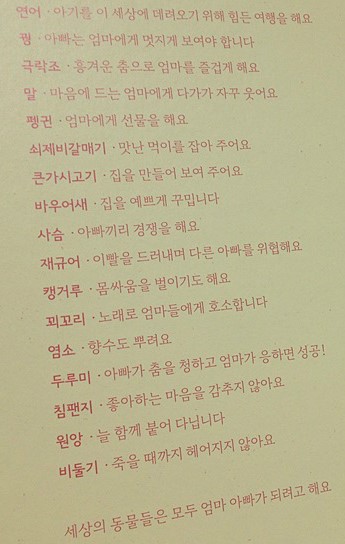 연어 · 아기를 이 세상에 데려오기 위해 힘든 여행을 해요
꿩 · 아빠는 엄마에게 멋지게 보여야 합니다
극락조 · 흥겨운 춤으로 엄마를 즐겁게 해요
말 · 마음에 드는 엄마에게 다가가 자꾸 웃어요
펭귄 · 엄마에게 선물을 해요
쇠제비갈매기 · 맛난 먹이를 잡아 주어요
큰가시고기 · 집을 만들어 보여 주어요
바우어새 · 집을 예쁘게 꾸밉니다
사슴 · 아빠끼리 경쟁을 해요
재규어 · 이빨을 드러내며 다른 아빠를 위협해요
캥거루 · 몸싸움을 벌이기도 해요
꾀꼬리 · 노래로 엄마들에게 호소합니다
염소 · 향수도 뿌려요
두루미 · 아빠가 춤을 청하고 엄마가 응하면 성공!
침팬지 · 좋아하는 마음을 감추지 않아요
원앙 · 늘 함께 붙어 다닙니다
비둘기 · 죽을 때까지 헤어지지 않아요
세상의 동물들은 모두 엄마 아빠가 되려고 해요